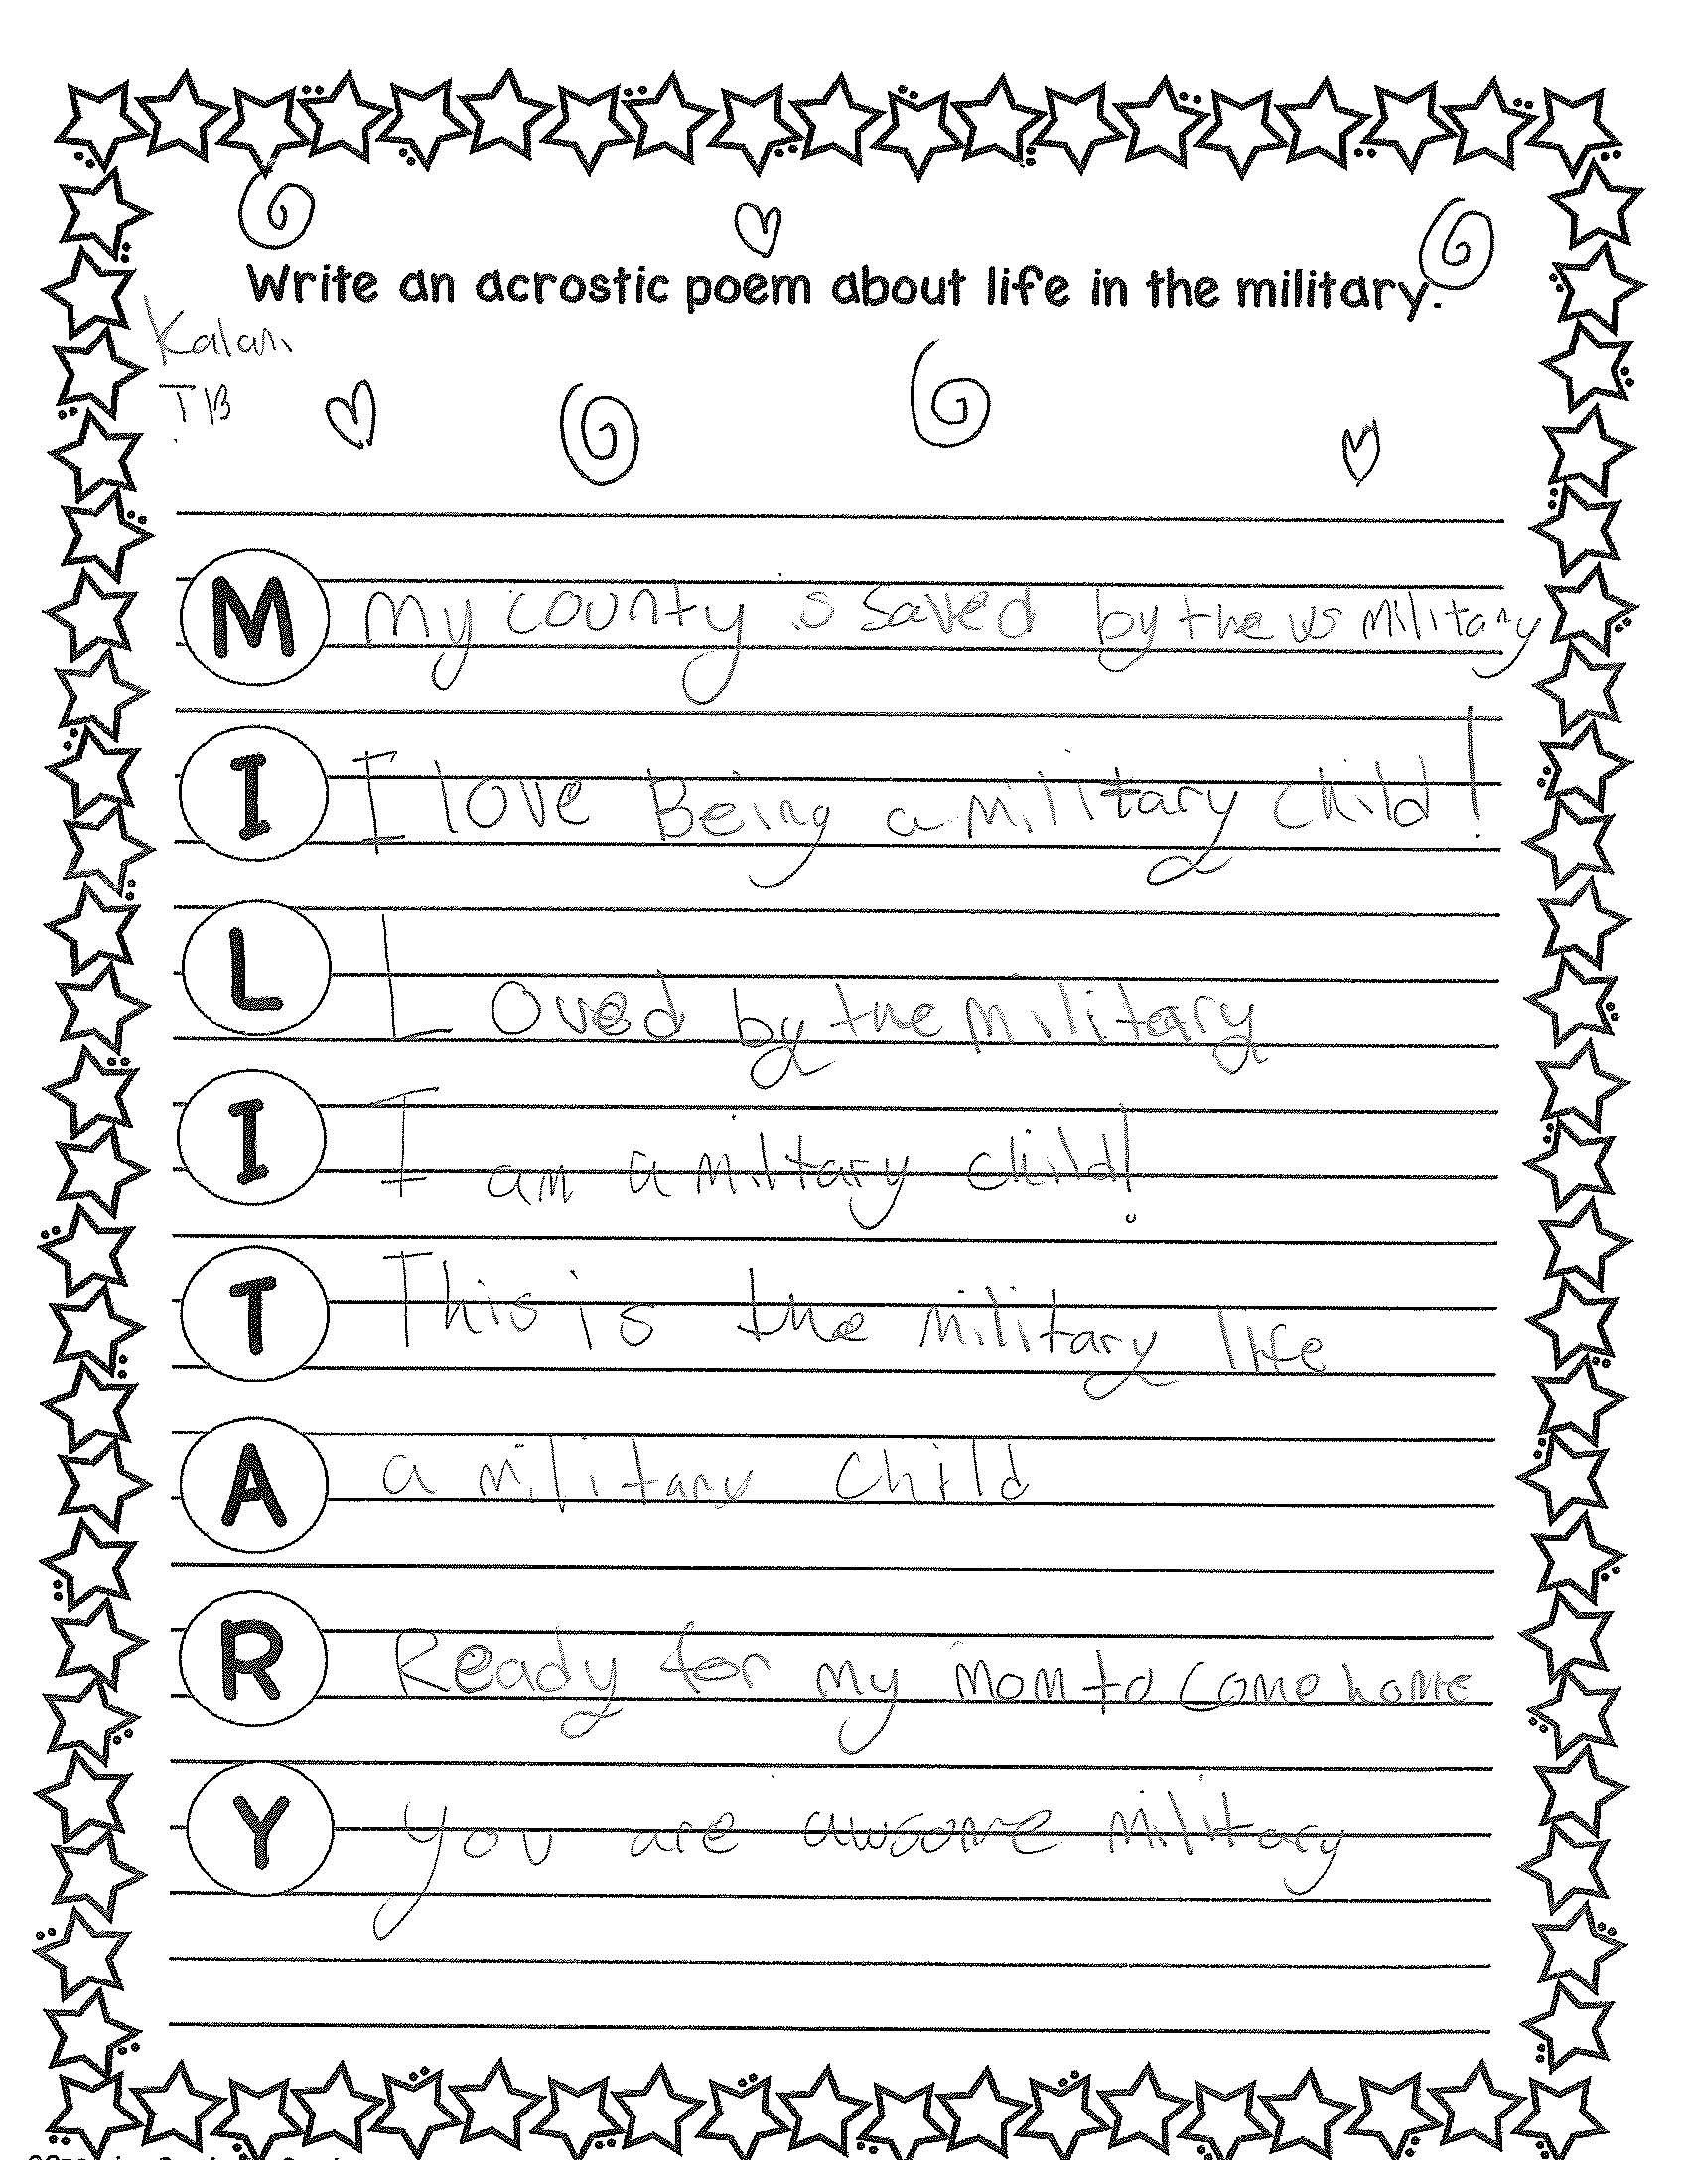 Write an acrostic poem about life in the military.
Kalani
TB
M My county is saved by the us military
I I love Being a military child!
L Loved by the military
I I am a miltary child!
T This is the military life
A a military child
R Ready for my mom to come home
Y you are awsome military